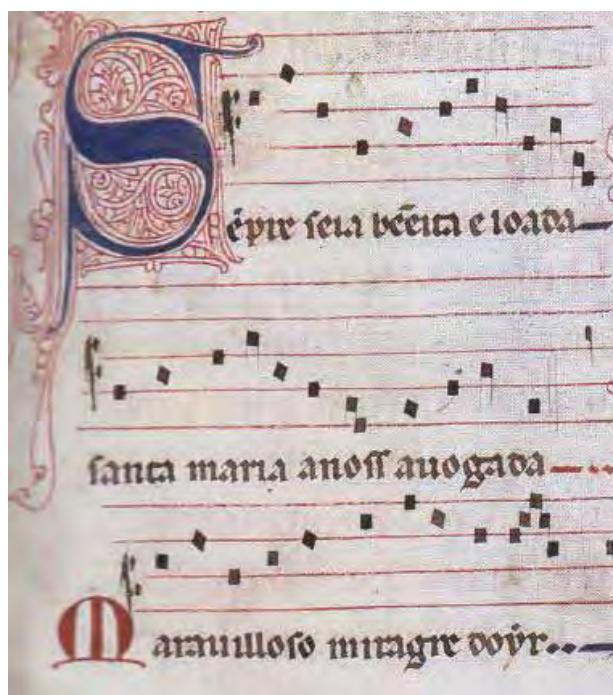 Sẽpre seia bẽeita e loada
santa maria a noss auogada
Marauilloso miragre doyr